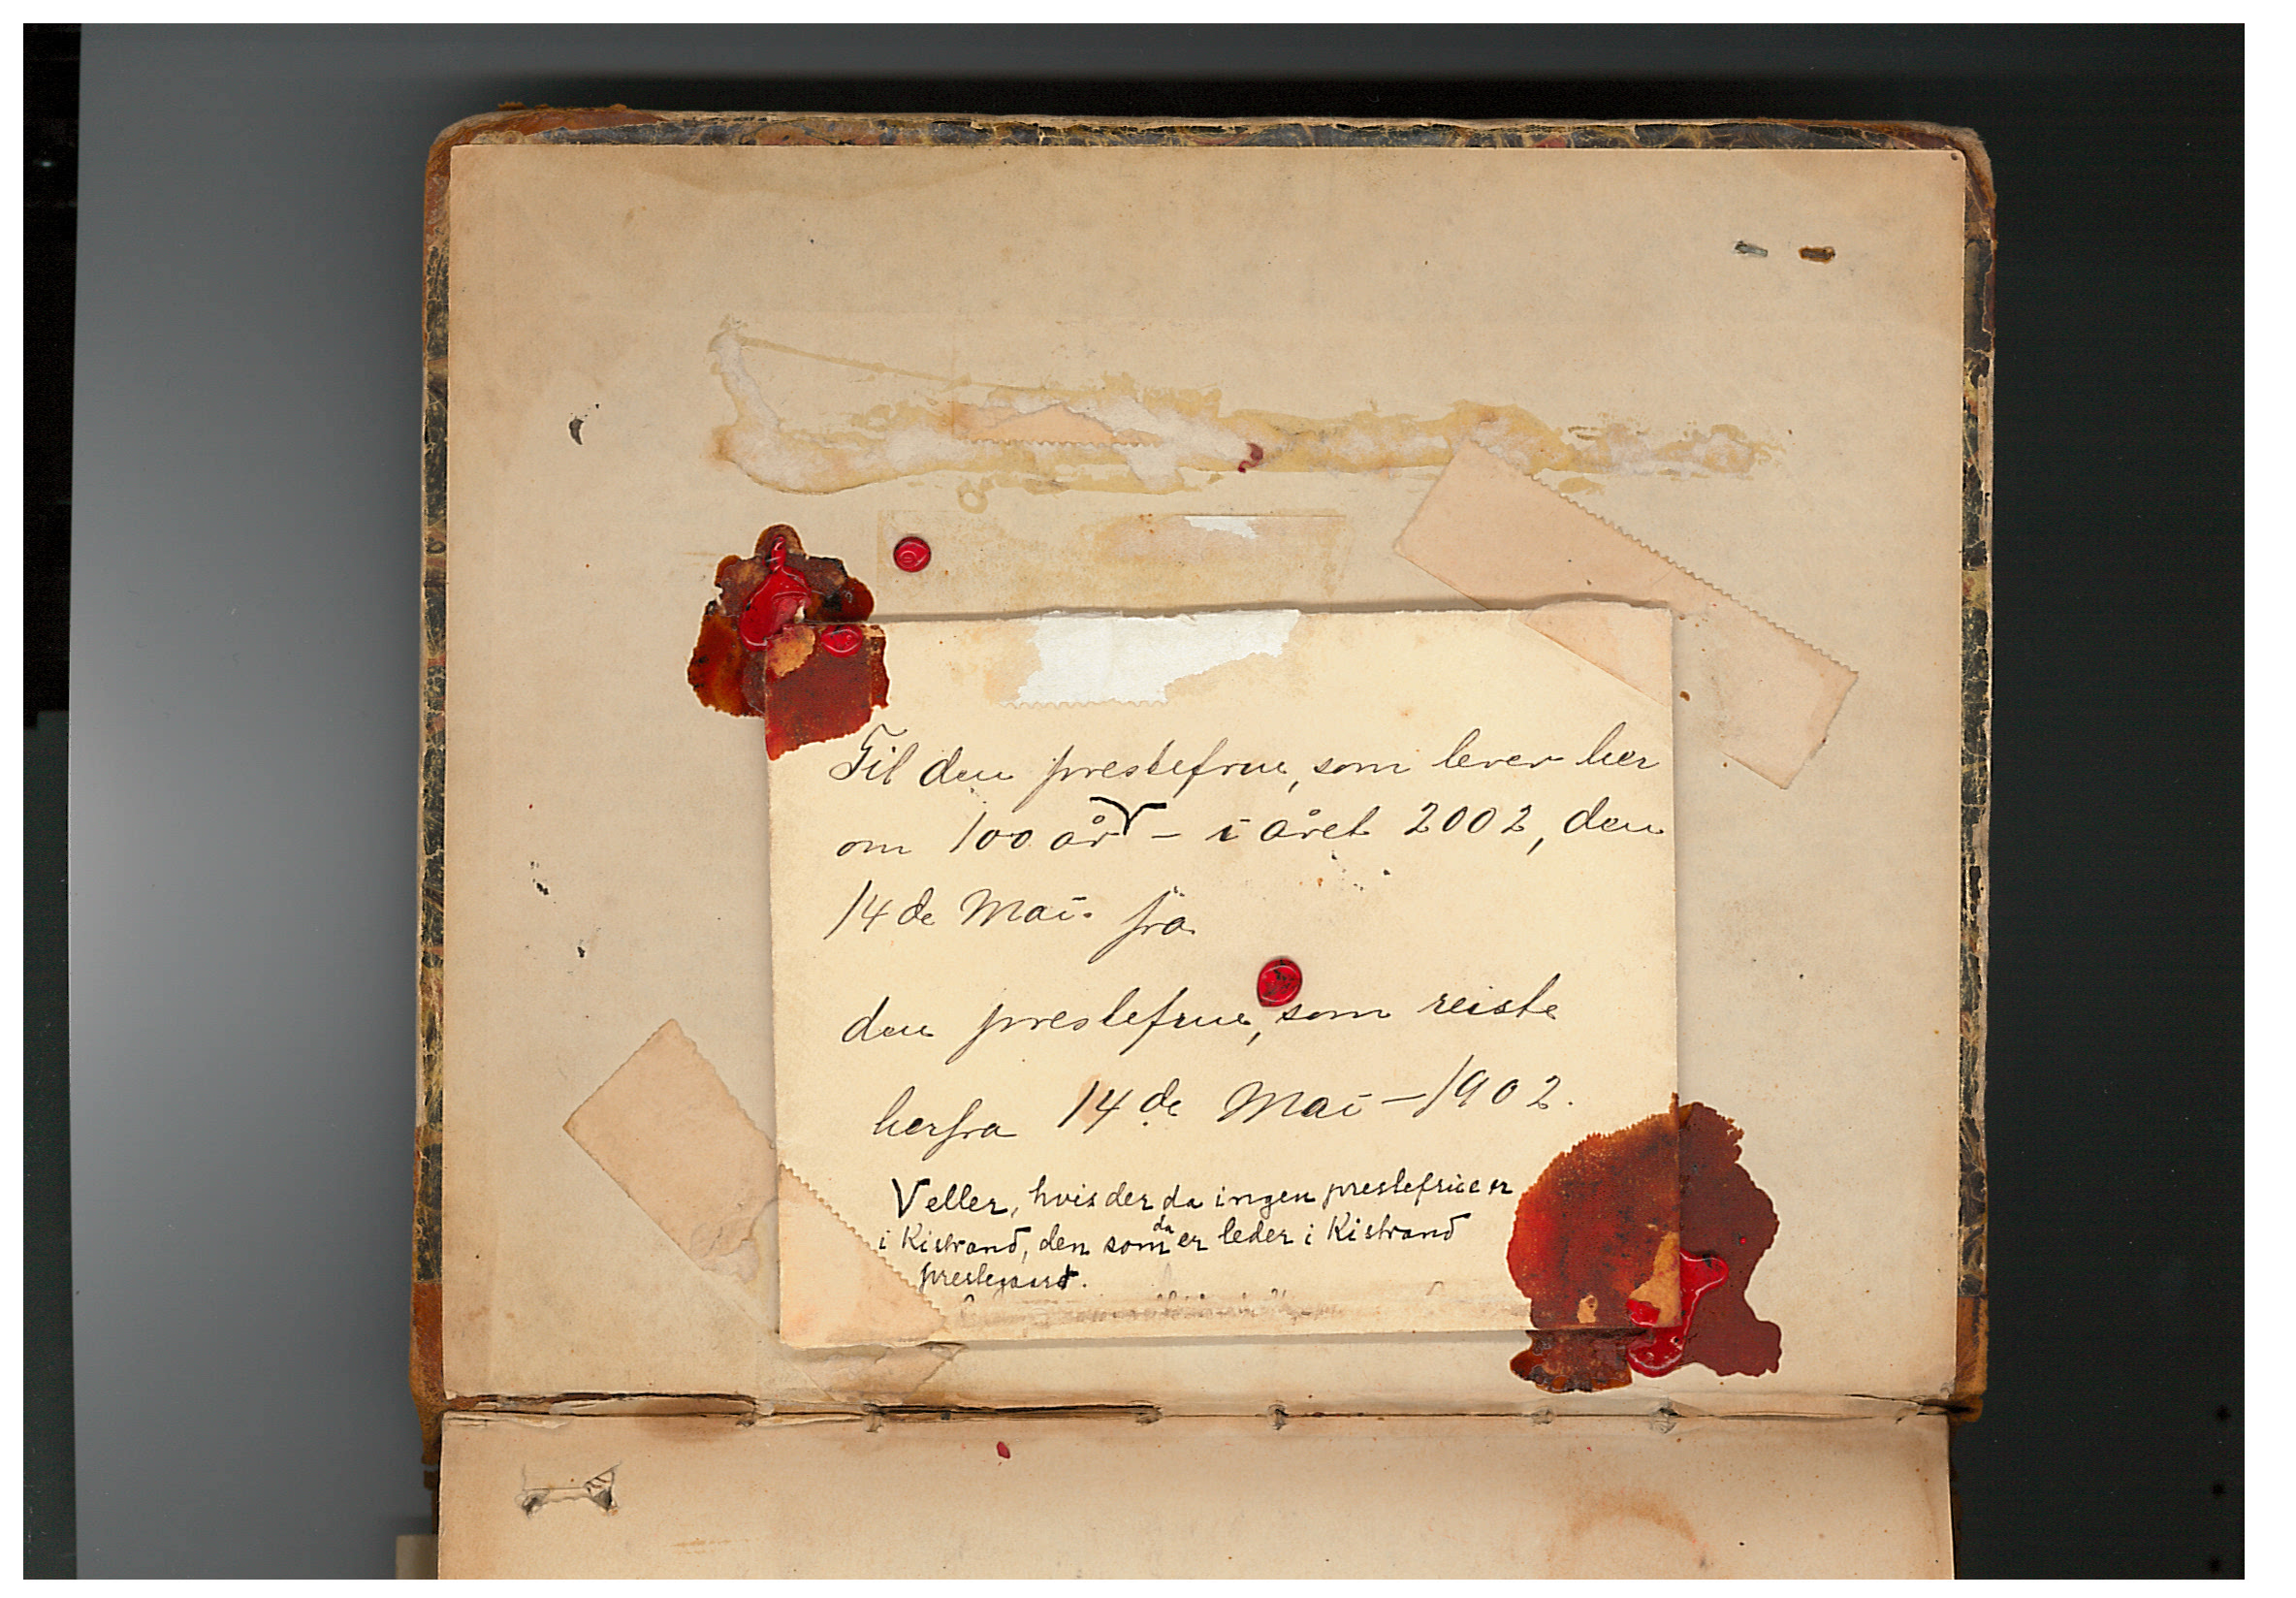 Til den prestefrue, som lever her
om 100 år V – i året 2002, den
14de Mai. fra
den prestefrue, som reiste
herfra 14de Mai – 1902.
V eller, hvis der da ingen prestefrue er
i Kistrand, den som da er leder i Kistrand
prestegard.